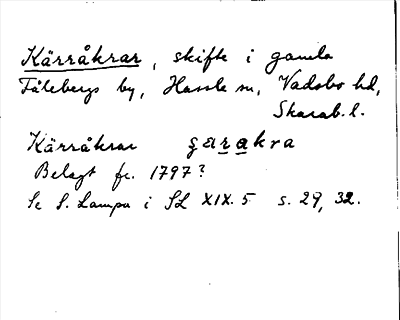 Kärråkrar, skifte i gamla
Fålebergs by, Hassle sn, Vadsbo hd,
Skarab. l.
Kärråkrar ȿarakra
Belagt fr. 1797?
Se S. Lampa i SL XIX. 5 s. 29, 32.